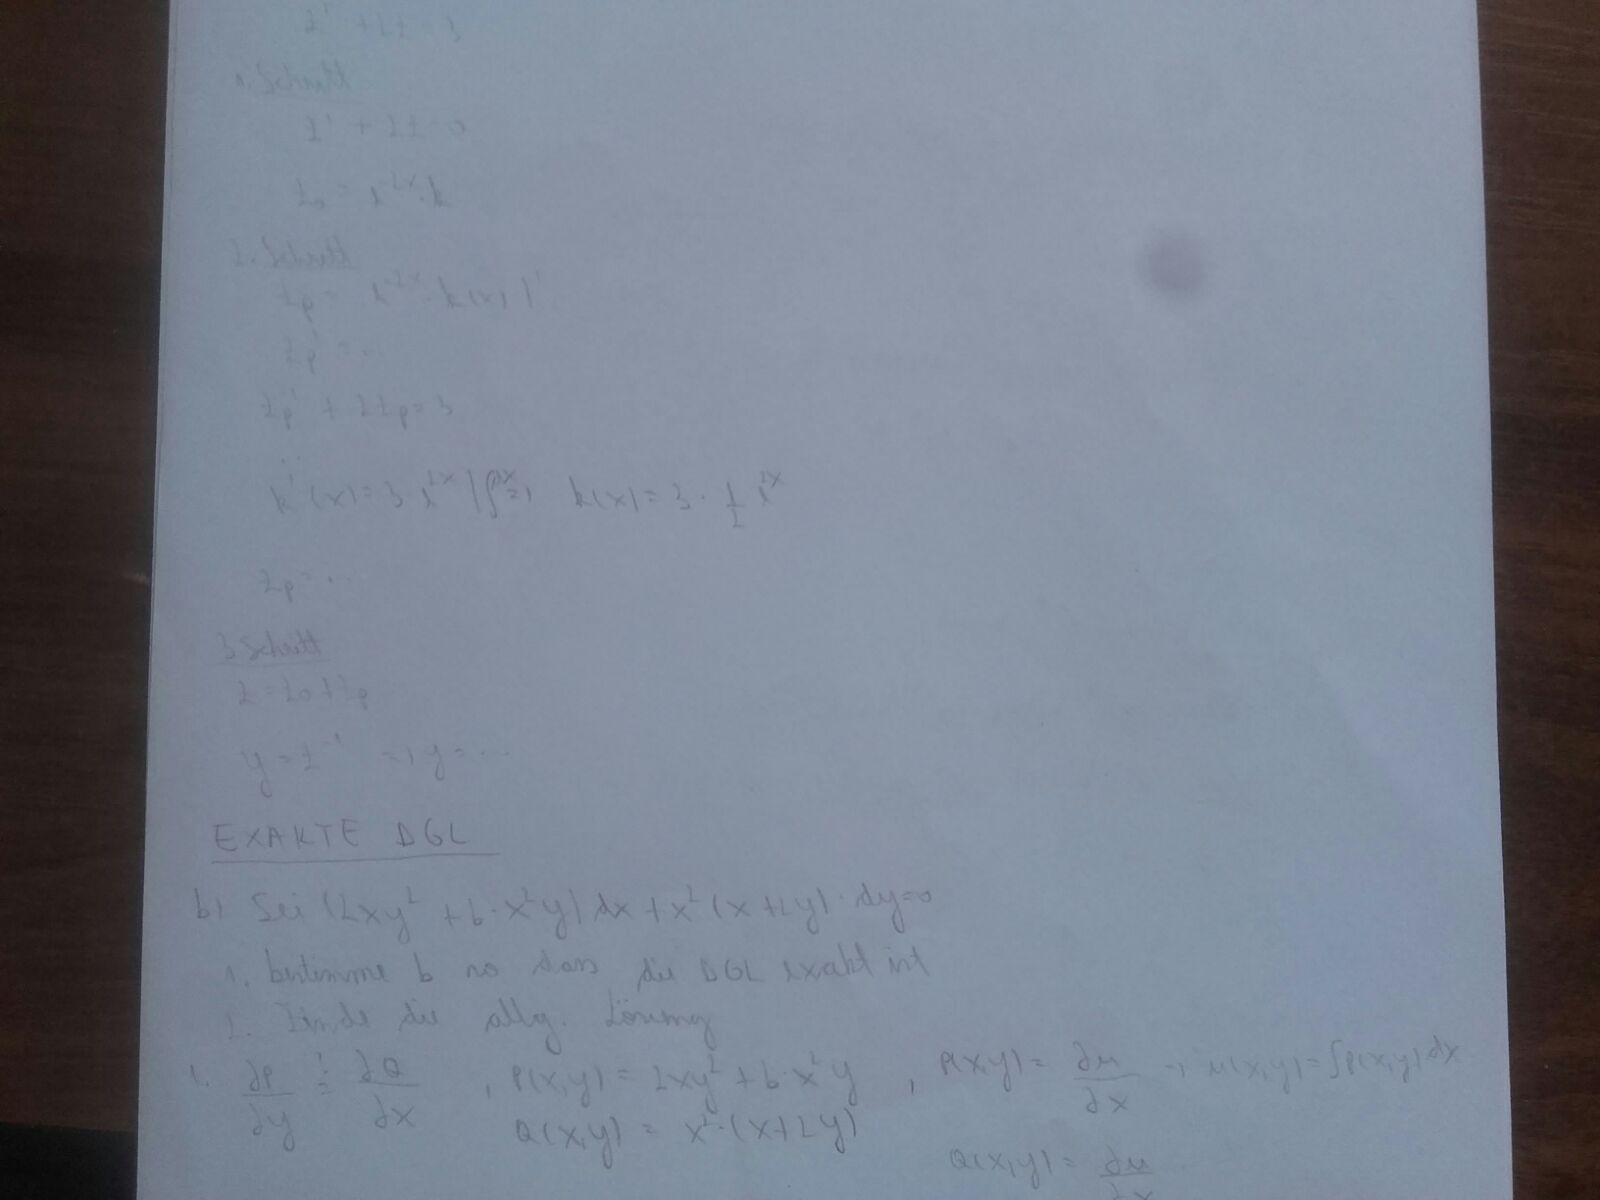 z' + 2z = 3
1. Schritt
z' + 2z = 0
z₀ = e^-2x · k
2. Schritt
zp = e^-2x · k(x) |'
zp' = ...
zp' + 2zp = 3
..
k'(x) = 3 · e^2x |∫dx => k(x) = 3 · 1/2 e^2x
zp = ...
3 Schritt
z = z₀ + zp
y = z^-1 => y = ...
EXAKTE DGL
b) Sei (2xy² + b · x²y) dx + x² (x + 2y) · dy = 0
1. bestimme b so dass die DGL exakt ist
2. Finde die allg. Lösung
1. ∂P/∂y =! ∂Q/∂x , P(x,y) = 2xy² + b · x²y , P(x,y) = ∂u/∂x -> u(x,y) = ∫P(x,y) dx
Q(x,y) = x² · (x + 2y)
Q(x,y) = ∂u